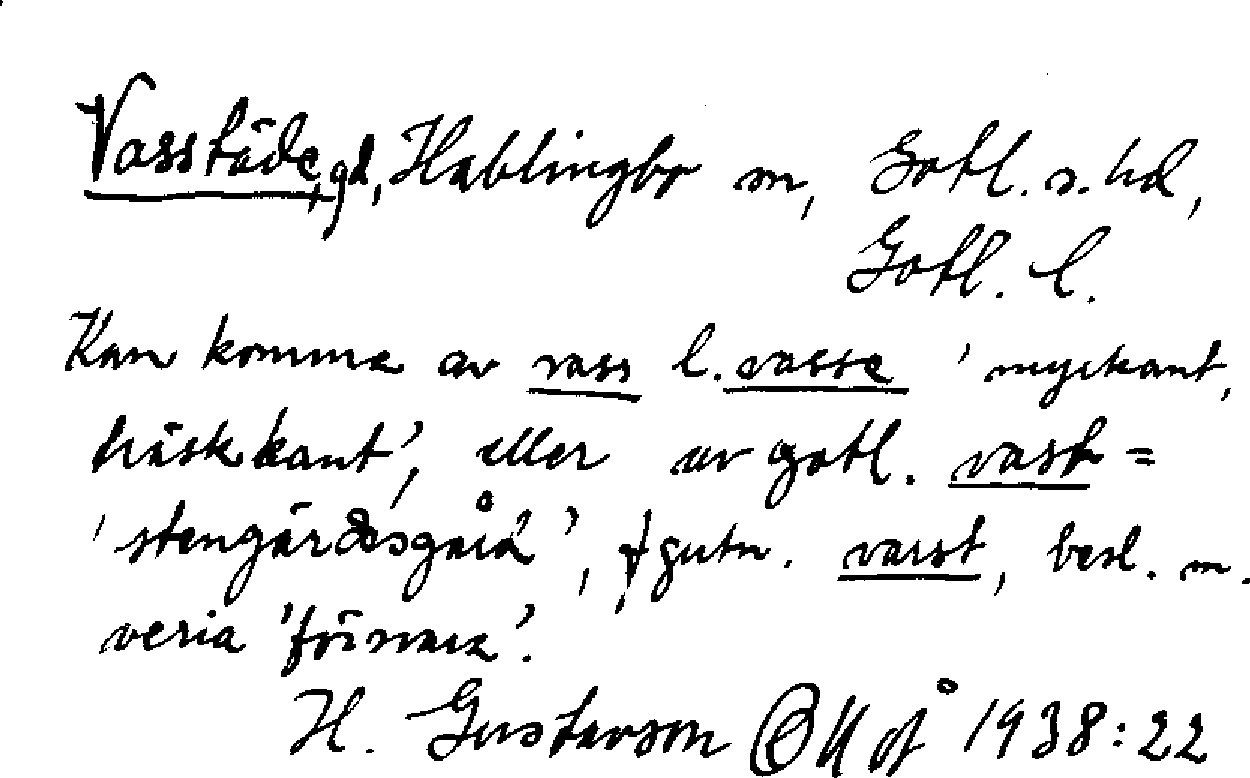 Vasstäde, gd, Hablingbo sn, Gotl. s. hd,
Gotl. l.
Kan komma av vass l. vasse 'myrkant,
träskkant', eller av gotl. vast =
'stengärdesgård', fgutn. varst, besl. m.
veria 'försvara'.
H. Gustavson OUÅ 1938:22